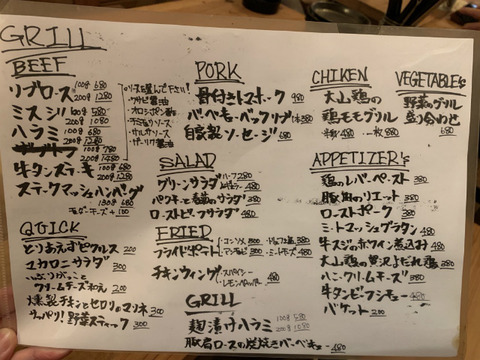 GRILL
BEEF
リブロース 100g 680
200g 1280
ミスジ 100g 580
200g 1080
ハラミ 100g 680
200g 1280
100g 780
200g 1480
牛タンステーキ 100g 680
200g 1280
ステークマッシュハンバーグ
130g 680
チーズ +100
ソースを選んで下さい!
・ワサビ醤油
・オロシポン酢
・デミグラソース
・サルサソース
・ガーリック醤油
QUICK
とりあえずピクルス 200
マカロニサラダ 300
いぶりがっこと
クリームチーズ和え 200
燻製チキンとセロリのマリネ 300
サッパリ!野菜スティック 300
PORK
骨付きトマホーク 980
バーベキューバックリブ 1本380
自家製ソーセージ 680
SALAD
グリーンサラダ ハーフ280
レギュラー 480
パクチーと春菊のサラダ 380
ローストビーフサラダ 480
FRIED
フライドポテト
・コンソメ 300
チキンウィング
・スパイシー
・レモンペッパー 480
GRILL
麹漬けハラミ 100g 580
200g 1080
豚肩ロースの炭焼きバーベキュー 480
CHIKEN
大山鶏の
鶏モモグリル
半羽 480 一枚 880
VEGETABLE's
野菜のグリル
盛り合わせ
680
APPETIZER's
鶏のレバーペースト 380
豚肉のリエット 380
ローストポーク 380
ミートマッシュグラタン 480
牛スジの赤ワイン煮込み 480
大山鶏の贅沢よだれ鶏 380
ハニークリームチーズ 380
牛タンビーフシチュー 480
バケット 200